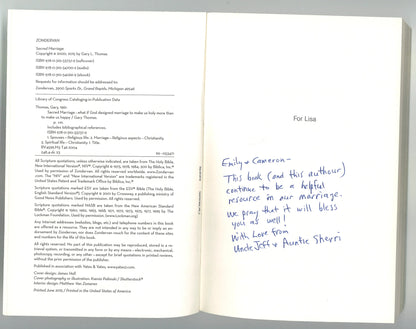 ZONDERVAN
Sacred Marriage
Copyright © 2000, 2015 by Gary L. Thomas
Requests for information should be addressed to:
Zondervan, 3900 Sparks Dr., Grand Rapids, Michigan 49546
Library of Congress Cataloging-in-Publication Data
Thomas, Gary, 1961-
Sacred Marriage : what if God designed marriage to make us holy more than
to make us happy / Gary Thomas.
p. cm.
Includes bibliographical references.
1. Spouses—Religious life. 2. Marriage—Religious aspects—Christianity.
3. Spiritual life—Christianity. I. Title.
All Scripture quotations, unless otherwise indicated, are taken from The Holy Bible,
New International Version®, NIV®. Copyright © 1973, 1978, 1984, 2011 by Biblica, Inc.®
Used by permission of Zondervan. All rights reserved worldwide. www.Zondervan.
com. The "NIV" and "New International Version" are trademarks registered in the
United States Patent and Trademark Office by Biblica, Inc.®
Scripture quotations marked ESV are taken from the ESV® Bible (The Holy Bible,
English Standard Version®). Copyright © 2001 by Crossway, a publishing ministry of
Good News Publishers. Used by permission. All rights reserved.
Scripture quotations marked NASB are taken from the New American Standard
Bible®. Copyright © 1960, 1962, 1963, 1968, 1971, 1972, 1973, 1975, 1977, 1995 by The
Lockman Foundation. Used by permission. (www.Lockman.org)
Any Internet addresses (websites, blogs, etc.) and telephone numbers in this book
are offered as a resource. They are not intended in any way to be or imply an en-
dorsement by Zondervan, nor does Zondervan vouch for the content of these sites
and numbers for the life of this book.
All rights reserved. No part of this publication may be reproduced, stored in a re-
trieval system, or transmitted in any form or by any means—electronic, mechanical,
photocopy, recording, or any other—except for brief quotations in printed reviews,
without the prior permission of the publisher.
Published in association with Yates & Yates, www.yates2.com.
Cover design: James Hall
Interior design: Matthew Van Zomeren
Printed in the United States of America
For Lisa
Emily & Cameron -
This book (and this author)
continue to be a helpful
resource in our marriage.
We pray that it will bless
you as well!
With Love from
Uncle Jeff & Auntie Sherri